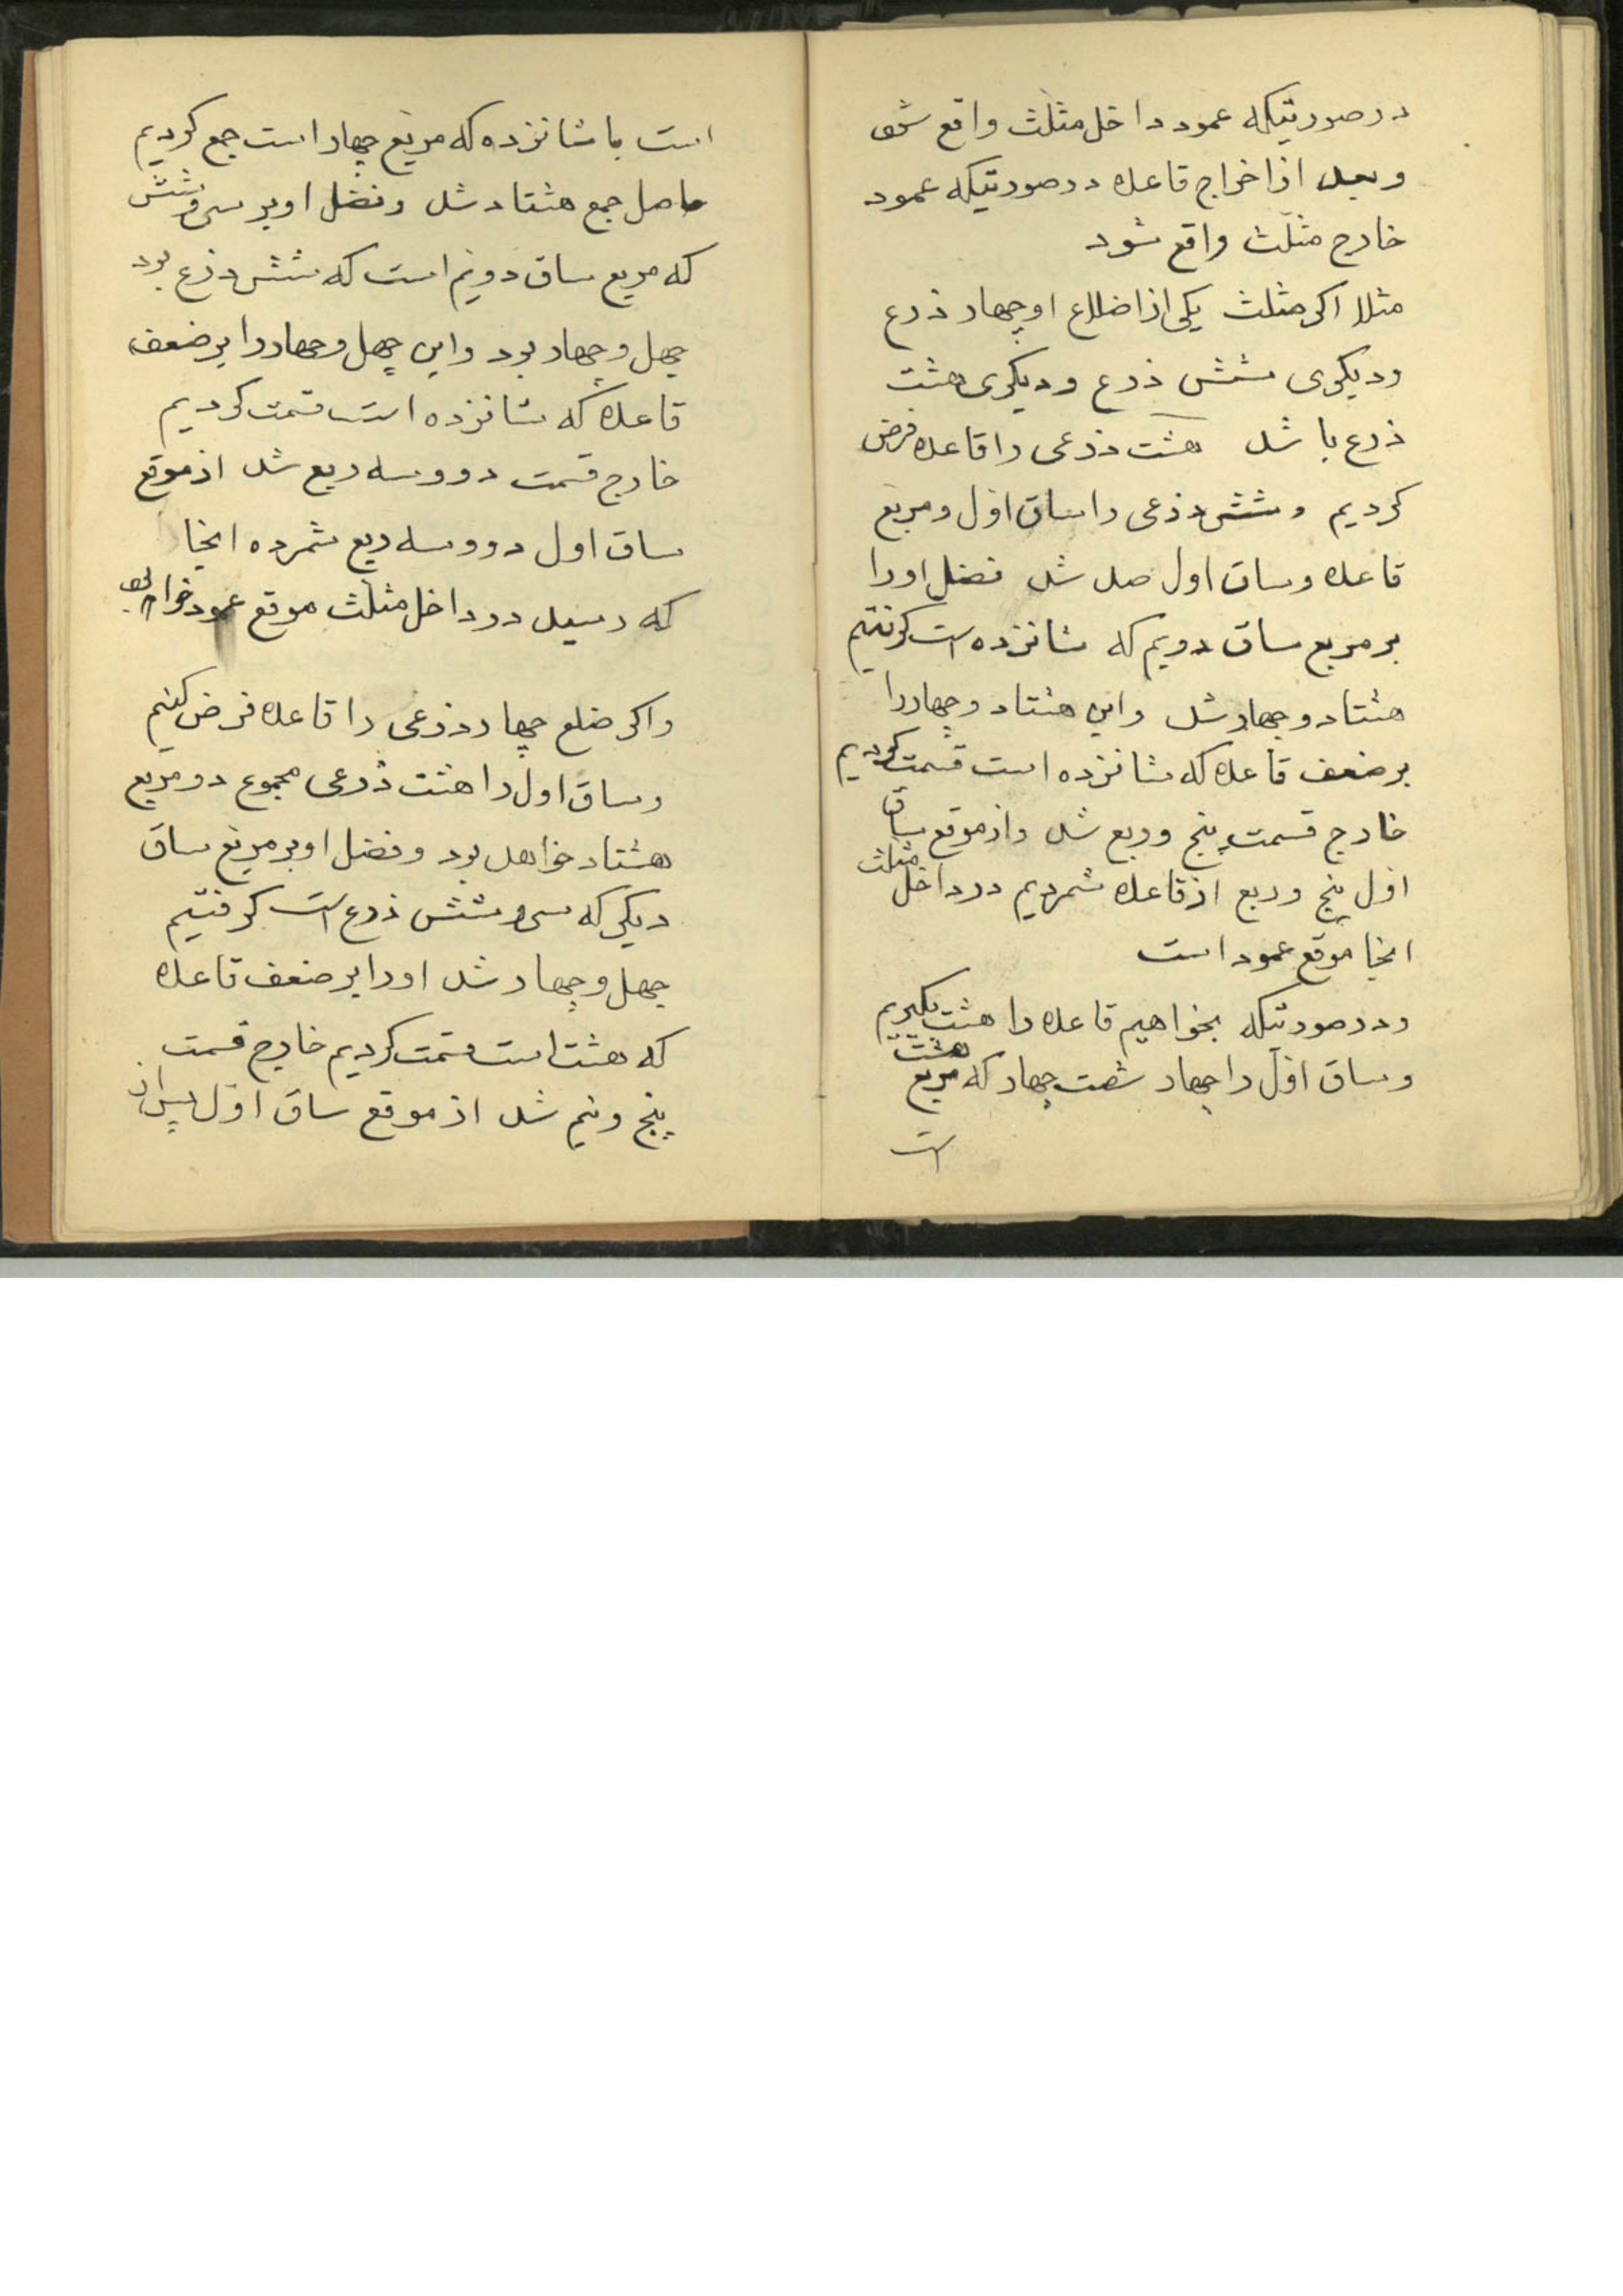 در صورتیکه عمود داخل مثلث واقع شود
و بعد از اخراج قاعده در صورتیکه عمود
خارج مثلث واقع شود
مثلا اکر مثلث یکی از اضلاع او چهار ذرع
و دیکری شش ذرع و دیکری هشت
ذرع باشد هشت ذرعی را قاعده فرض
کردیم و شش ذرعی را ساق اول و مربع
قاعده و ساق اول صد شد فضل او را
بر مربع ساق دویم که شانزده است کرفتیم
هشتاد و چهار شد و این هشتاد و چهار را
بر ضعف قاعده که شانزده است قسمت کردیم
خارج قسمت پنج و ربع شد و از موقع ساق
اول پنج و ربع از قاعده شمردیم در داخل مثلث
انجا موقع عمود است
و در صورتیکه بخواهیم قاعده را هشت بکیریم
و ساق اول را چهار شصت چهار که مربع هشت
است
است با شانزده که مربع چهار است جمع کردیم
حاصل جمع هشتاد شد و فضل او بر سی و شش
که مربع ساق دویم است که شش ذرع بود
چهل و چهار بود و این چهل و چهار را بر ضعف
قاعده که شانزده است قسمت کردیم
خارج قسمت دو و سه ربع شد از موقع
ساق اول دو و سه ربع شمرده انجا
که رسید در داخل مثلث موقع عمود خواهد بود
و اکر ضلع چهار ذرعی را قاعده فرض کنیم
و ساق اول را هشت ذرعی مجموع دو مربع
هشتاد خواهد بود و فضل او بر مربع ساق
دیکر که سی و شش ذرع است کرفتیم
چهل و چهار شد او را بر ضعف قاعده
که هشت است قسمت کردیم خارج قسمت
پنج و نیم شد از موقع ساق اول پس از